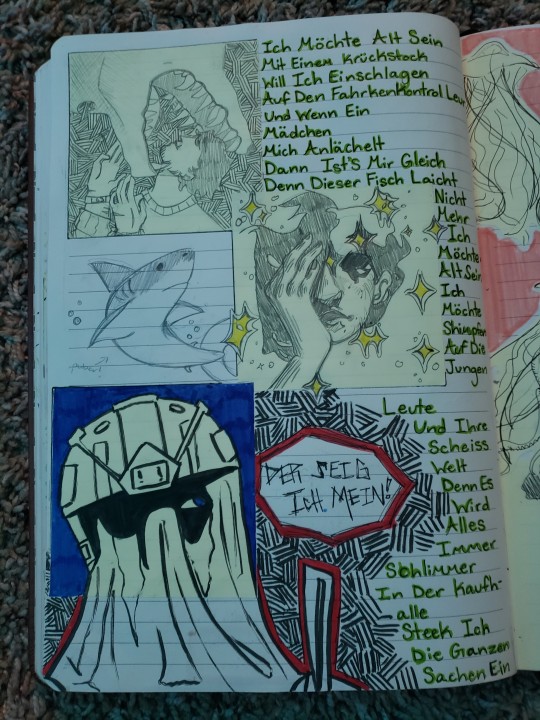 Ich Möchte Alt Sein
Mit Einem Krückstock
Will Ich Einschlagen
Auf Den Fahrkenkontrol Leur
Und Wenn Ein
Mädchen
Mich Anlächelt
Dann Ist's Mir Gleich
Denn Dieser Fisch Laicht
Nicht
Mehr
Ich
Möchte
Alt Sein
Ich
Möchte
Shimpfen
Auf Die
Jungen
Leute
Und Ihre
Scheiss
Welt
Denn Es
Wird
Alles
Immer
Schlimmer
In Der Kaufh-
alle
Steek Ich
Die Ganzen
Sachen Ein
DER SEIG
ICH MEIN!